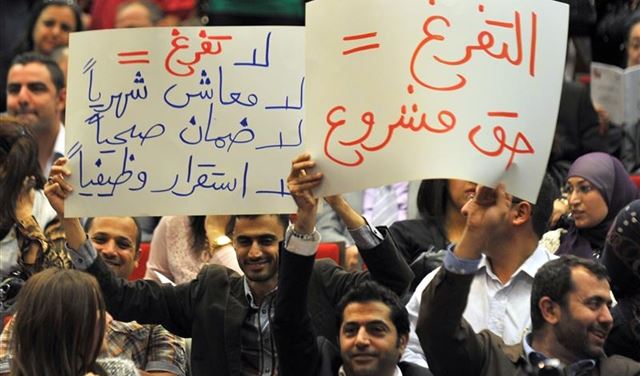 التفرغ =
حق مشروع
لا تفرغ =
لا معاش شهرياً
لا ضمان صحياً
لا استقرار وظيفياً